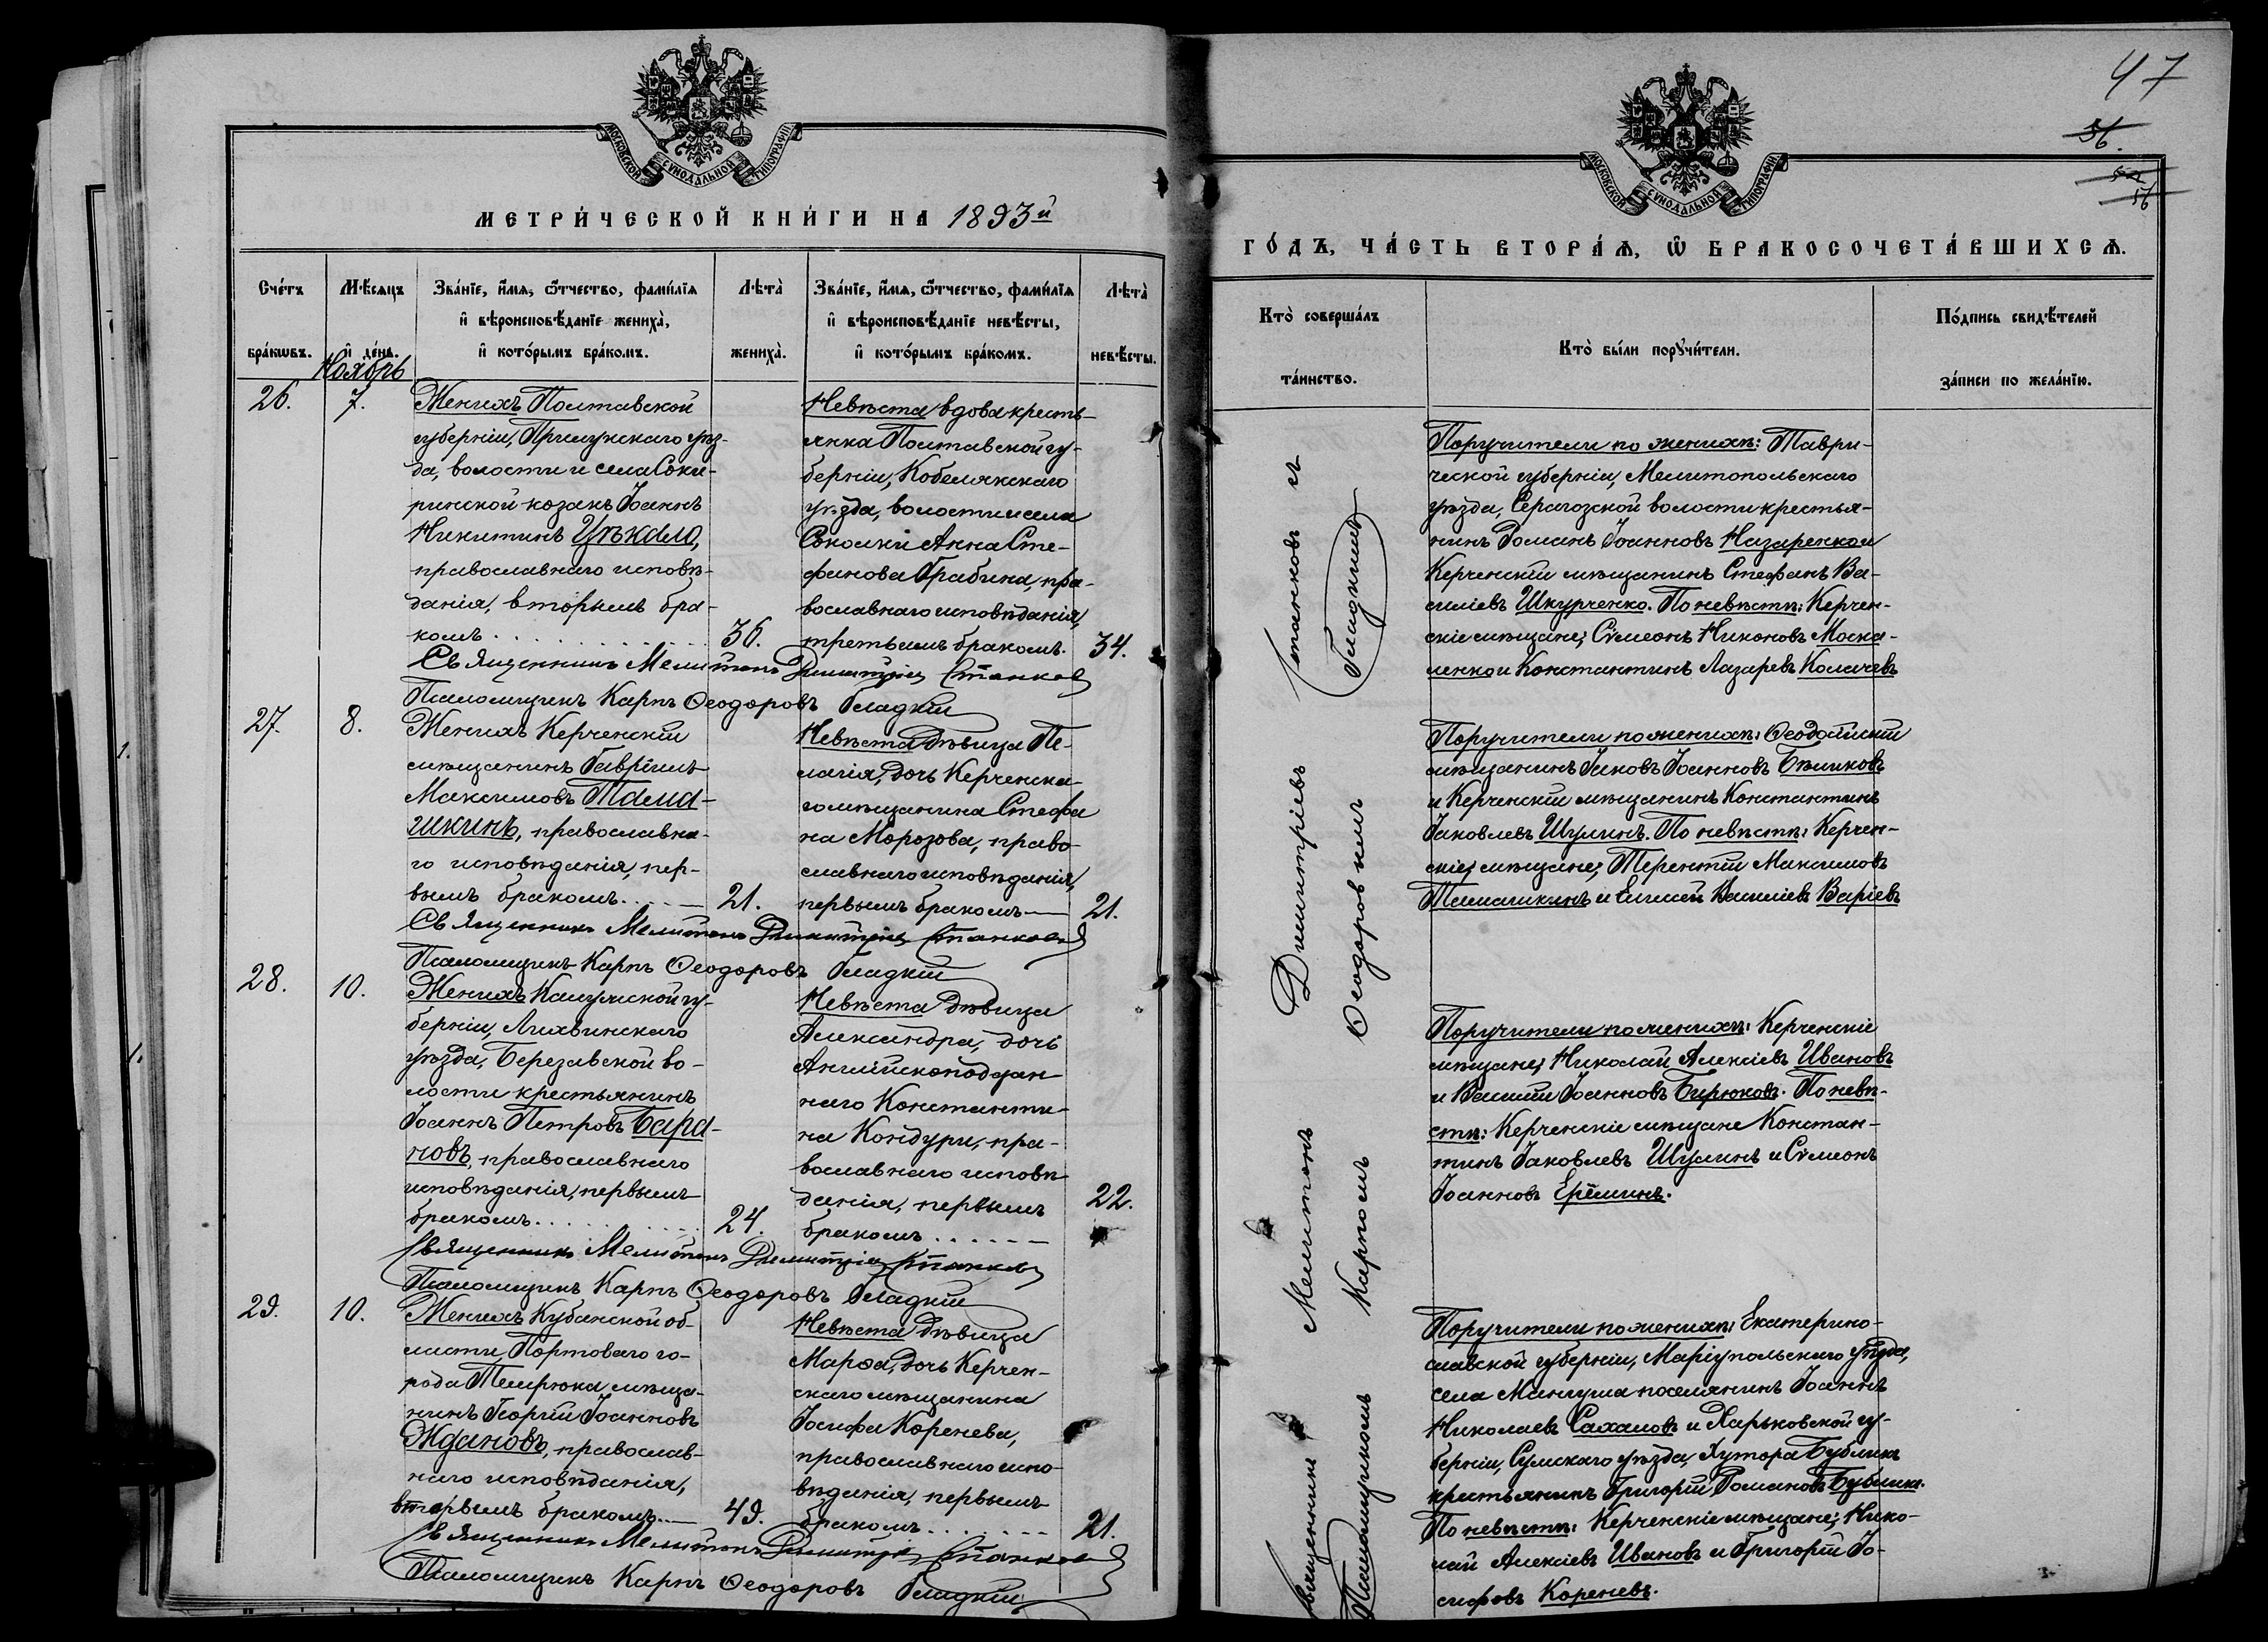 МОСКОВСКОЙ СУНОДАЛЬНОЙ ТИПОГРАФІИ
МЕТРИ́ЧЕСКОЙ КНИ́ГИ НА 1893й
Сче́тъ бра́кѡвъ.
Мѣ́сяцъ и҆ де́нь.
Зва́нїе, и҆́мѧ, ѻ҆́тчество, фами́лїѧ
и҆ вѣроисповѣ́данїе жениха̀,
и҆ кото́рымъ бра́комъ.
Лѣта̀ жениха̀.
Зва́нїе, и҆́мѧ, ѻ҆́тчество, фами́лїѧ
и҆ вѣроисповѣ́данїе невѣ́сты,
и҆ кото́рымъ бра́комъ.
Лѣта̀ невѣ́сты.
Ноябрь
26.
7.
Женихъ Полтавской
губерніи, Прилукскаго уѣз-
да, волости и села Соки-
ринской козакъ Іоаннъ
Никитинъ Цѣкало,
православнаго исповѣ-
данія, вторымъ бра-
комъ
36.
Невѣста вдова кресть-
янка Полтавской гу-
берніи, Кобелякскаго
уѣзда, волости и села
Соколки Анна Сте-
фанова Грабина, пра-
вославнаго исповѣданія,
третьимъ бракомъ.
34.
Священникъ Мелитонъ Димитріевъ Станковъ
Псаломщикъ Карпъ Ѳеодоровъ Гладкій
27.
8.
Женихъ Керченскій
мѣщанинъ Гавріилъ
Максимовъ Тама-
шкинъ, православна-
го исповѣданія, пер-
вымъ бракомъ
21.
Невѣста дѣвица Пе-
лагія, дочь Керченска-
го мѣщанина Стефа
на Морозова, право-
славнаго исповѣданія,
первымъ бракомъ
21.
Священникъ Мелитонъ Димитріевъ Станковъ
Псаломщикъ Карпъ Ѳеодоровъ Гладкій
28.
10.
Женихъ Калужской гу-
берніи, Лихвинскаго
уѣзда, Березевской во-
лости крестьянинъ
Іоаннъ Петровъ Бара-
новъ, православнаго
исповѣданія, первымъ
бракомъ
24.
Невѣста дѣвица
Александра, дочь
Англійскоподдан
наго Константи-
на Кондури, пра-
вославнаго исповѣ
данія, первымъ
бракомъ
22.
Священникъ Мелитонъ Димитріевъ Станковъ
Псаломщикъ Карпъ Ѳеодоровъ Гладкій
29.
10.
Женихъ Кубанской об-
ласти, Портоваго го-
рода Темрюка мѣща-
нинъ Георгій Іоанновъ
Ждановъ, православ-
наго исповѣданія,
вторымъ бракомъ
49.
Невѣста дѣвица
Марѳа, дочь Керчен-
скаго мѣщанина
Іосифа Коренева,
православнаго испо-
вѣданія, первымъ
бракомъ
21.
Священникъ Мелитонъ Димитріевъ Станковъ
Псаломщикъ Карпъ Ѳеодоровъ Гладкій
47
56.
56
МОСКОВСКОЙ СУНОДАЛЬНОЙ ТИПОГРАФІИ
ГО́ДЪ, ЧА́СТЬ ВТОРА́Ѧ, Ѽ БРАКОСОЧЕТА́ВШИХСѦ.
Кто̀ соверша́лъ
та́инство.
Кто̀ бы́ли порꙋчи́тели.
По́дпись свидѣ́телей
за́писи по жела́нїю.
Священникъ Мелитонъ Димитріевъ Станковъ съ
Псаломщикомъ Карпомъ Ѳеодоровымъ Гладкимъ
Поручители по женихѣ: Таври-
ческой губерніи, Мелитопольскаго
уѣзда, Серагозской волости крестья-
нинъ Романъ Іоанновъ Назаренко и
Керченскій мѣщанинъ Стефанъ Ва-
силіевъ Шкурченко. По невѣстѣ: Керчен-
скіе мѣщане; Сѵмеонъ Никоновъ Моска-
ленко и Константинъ Лазаревъ Количевъ
Поручители по женихѣ: Ѳеодосійскій
мѣщанинъ Іаковъ Іоанновъ Бѣликовъ
и Керченскій мѣщанинъ Константинъ
Іаковлевъ Шулинъ. По невѣстѣ: Керчен-
скіе мѣщане; Терентій Максимовъ
Тамашкинъ и Елисей Василіевъ Варіевъ
Поручители по женихѣ: Керченскіе
мѣщане; Николай Алексіевъ Ивановъ
и Василій Іоанновъ Бирюковъ. По невѣ-
стѣ: Керченскіе мѣщане Констан-
тинъ Іаковлевъ Шулинъ и Сѵмеонъ
Іоанновъ Ерёминъ.
Поручители по женихѣ: Екатерино-
славской губерніи, Маріупольскаго уѣзда,
села Мангуша поселянинъ Іоаннъ
Николаевъ Сахаловъ и Харьковской гу-
берніи, Сумскаго уѣзда, Хутора Бубликъ
крестьянинъ Григорій Романовъ Бубликъ.
По невѣстѣ: Керченскіе мѣщане; Нико-
лай Алексіевъ Ивановъ и Григорій Іо-
сифовъ Кореневъ.